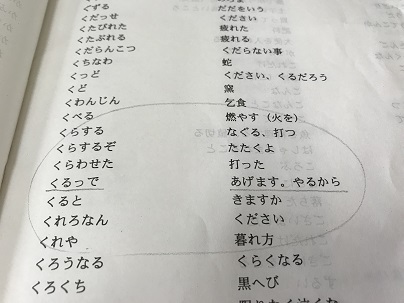 くずる だだをいう
くだっせ ください
くたびれた 疲れた
くたぶれる 疲れる
くだらんこつ くだらない事
くちなわ 蛇
くっど ください、くるだろう
くど 窯
くわんじん 乞食
くべる 燃やす（火を）
くらする なぐる、打つ
くらするぞ たたくよ
くらわせた 打った
くるっで あげます。やるから
くると きますか
くれろなん ください
くれや 暮れ方
くろうなる くらくなる
くろくち 黒へび